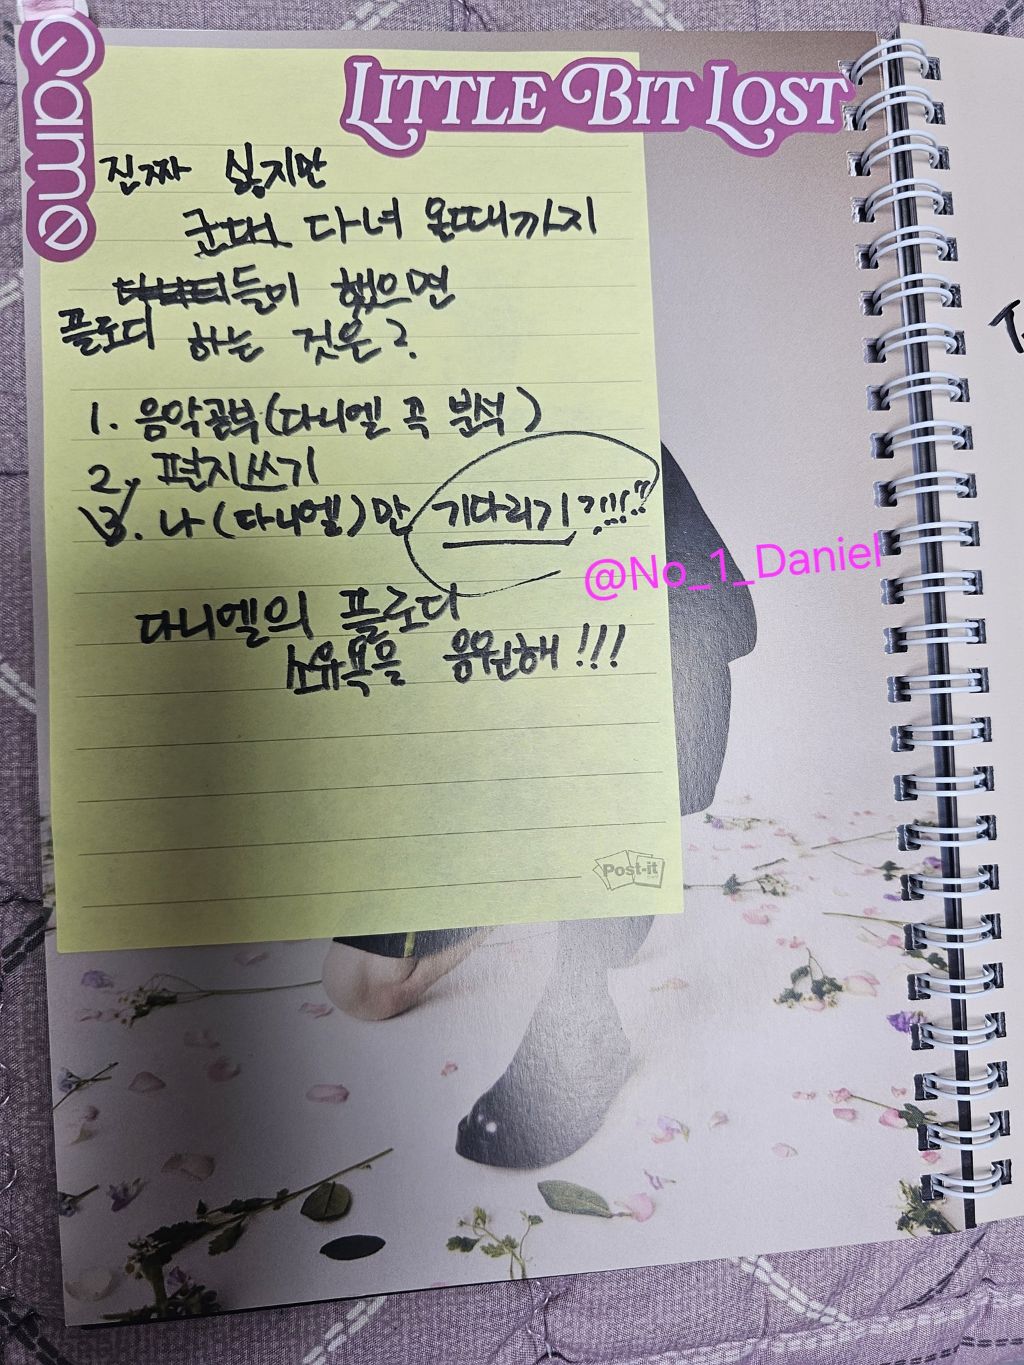 Game
LITTLE BIT LOST
진짜 싫지만
군대 다녀 올때까지
들이 했으면
플로디 하는 것은?
1. 음악공부(다니엘 곡 분석)
2. 편지쓰기
3. 나(다니엘)만 기다리기?!!!?
@No_1_Daniel
다니엘의 플로디
소유욕을 응원해!!!
Post-it